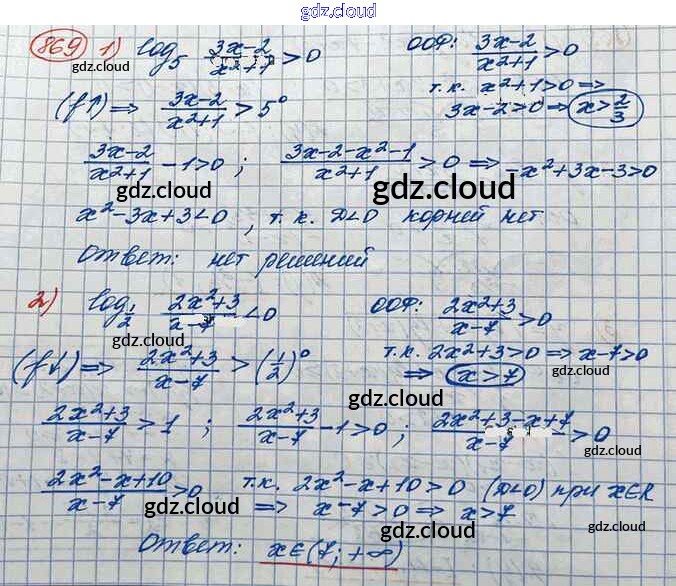 gdz.cloud
869 1) log₅ (3x-2)/(x²+1) > 0 ООФ: (3x-2)/(x²+1) > 0
gdz.cloud
т.к. x²+1>0 ⇒
(f↑) ⇒ (3x-2)/(x²+1) > 5⁰ 3x-2>0 ⇒ x>2/3
(3x-2)/(x²+1) - 1>0 ; (3x-2-x²-1)/(x²+1) > 0 ⇒ -x²+3x-3>0
gdz.cloud gdz.cloud
x²-3x+3<0, т.к. D<0 корней нет
Ответ: нет решений
gdz.cloud
2) log_{1/2} (2x²+3)/(x-7) < 0 ООФ: (2x²+3)/(x-7) > 0
gdz.cloud gdz.cloud
(f↓) ⇒ (2x²+3)/(x-7) > (1/2)⁰ т.к. 2x²+3>0 ⇒ x-7>0
⇒ x>7
gdz.cloud
gdz.cloud
(2x²+3)/(x-7) > 1 ; (2x²+3)/(x-7) - 1>0 ; (2x²+3-x+7)/(x-7) > 0
(2x²-x+10)/(x-7) > 0 т.к. 2x²-x+10>0 (D<0) при x∈R
⇒ x-7>0 ⇒ x>7
gdz.cloud gdz.cloud
Ответ: x∈(7; +∞)
gdz.cloud
gdz.cloud